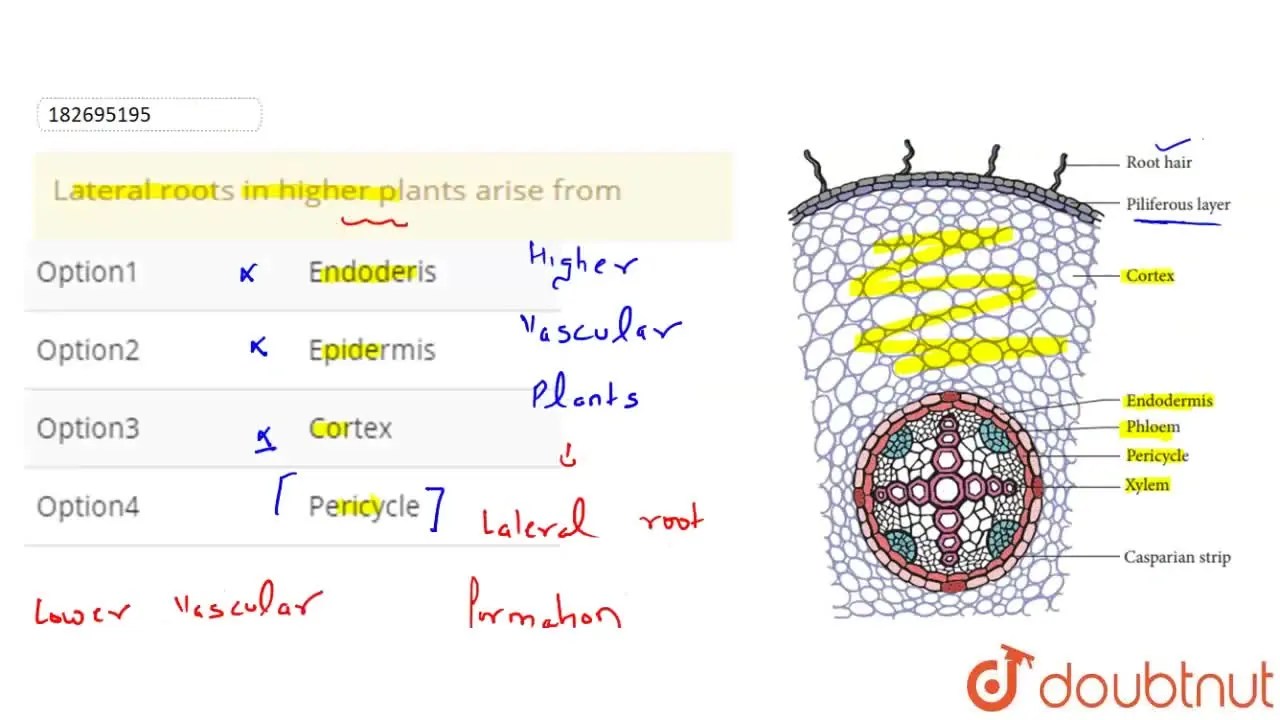 182695195
Lateral roots in higher plants arise from
Option1 x Endoderis
Option2 x Epidermis
Option3 x Cortex
Option4 [Pericycle]
Higher
Vascular
Plants
Lateral root
formation
Lower Vascular
Root hair
Piliferous layer
Cortex
Endodermis
Phloem
Pericycle
Xylem
Casparian strip
doubtnut